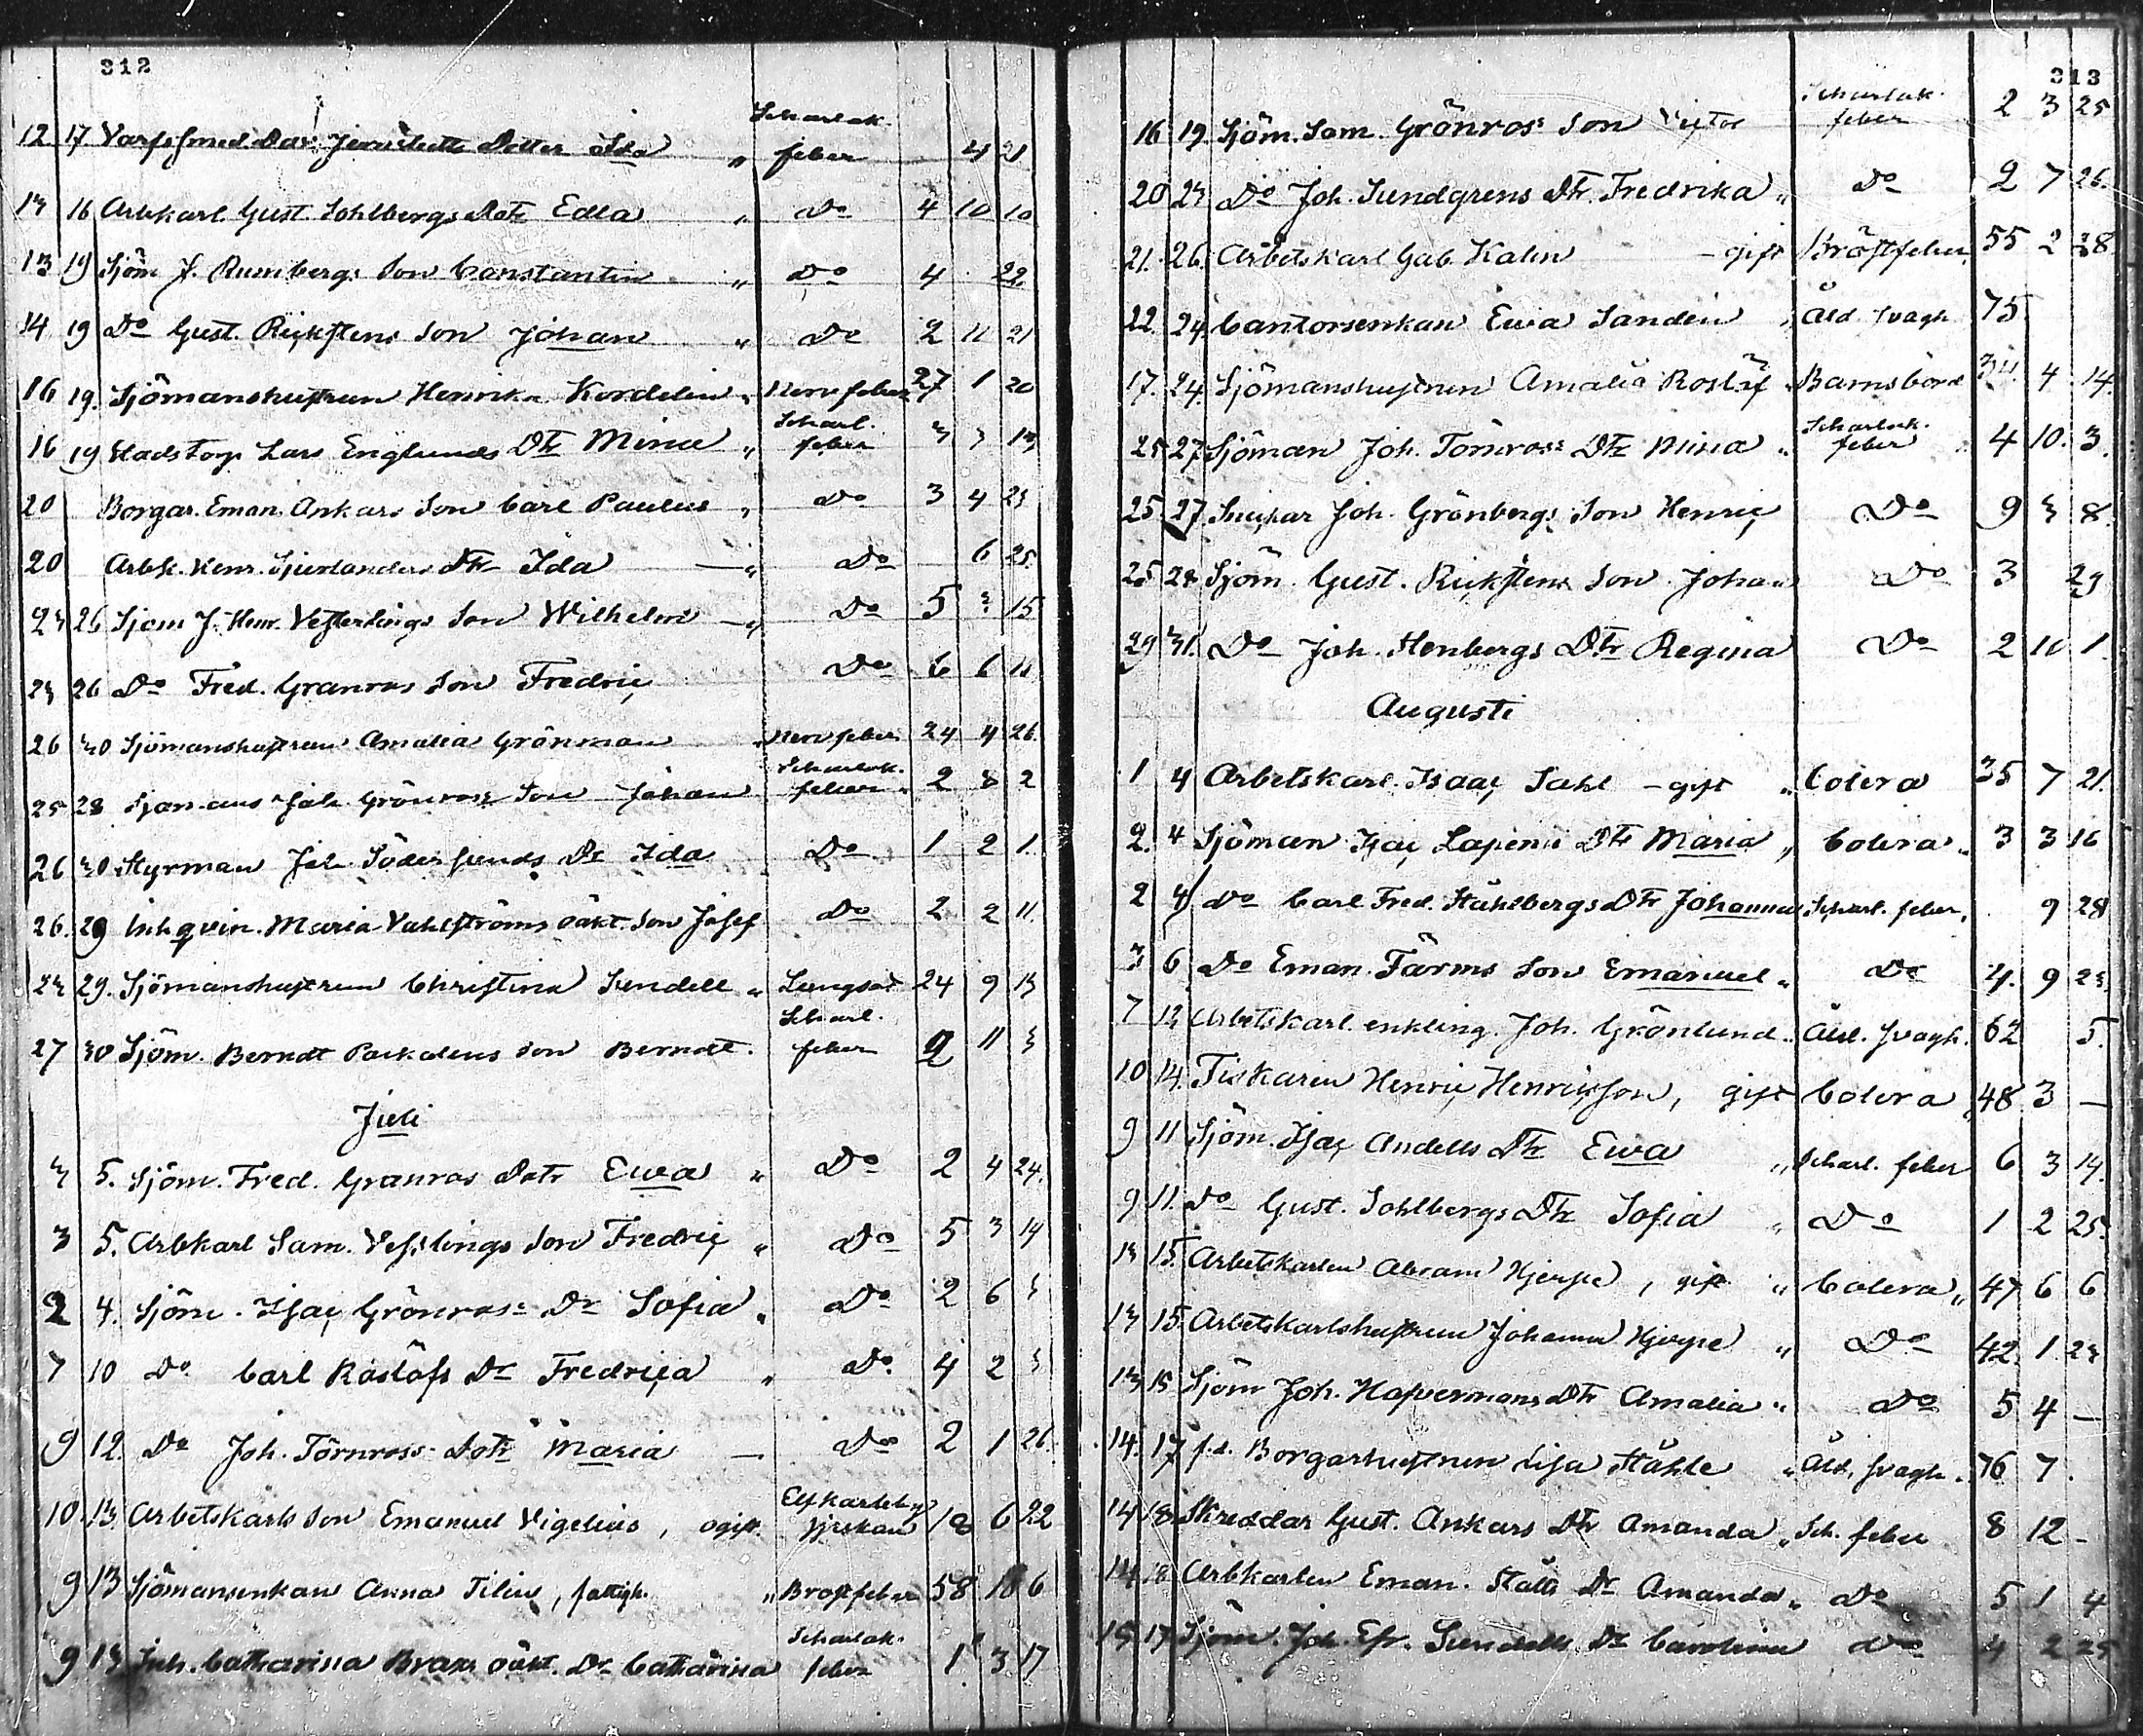 312
12. 17. Varfssmed Dav. Dotter Ida " Scharlak. feber 4 21
13 16 Arbkarl Gust. Sohlbergs Dotr Edla " Do 4 10 10
13 19 Sjöm J. Rumbergs Son Constantin " Do 4 22.
14 19 Do Gust. Rickstens Son Johan " Do 2 11 21
16 19. Sjömanshustrun Henrika Kordelin " Nervfeber 27 1 20
16 19 Stadstorp Lars Englunds Dtr Mina " Scharl. feber 3 3 13
20 Borgar. Eman. Ankars Son Carl Paulus " Do 3 4 23
20 Arbk. Henr. Sjierlanders Dtr Ida — " Do 6 25.
23 26 Sjöm J. Henr. Vesterlings Son Wilhelm — " Do 5 3 15
23 26 Do Fred. Granros Son Fredric Do 6 6 11
26 30 Sjömanshustrun Amalia Grönman " Nervfeber 24 4 26.
25 28 Sjömans Joh. Grönross Son Johan Scharlak. feber " 2 8 2
26 30. Styrman Joh. Söderlunds Dr Ida Do 1 2 1.
26. 29 Inh.qvin. Maria Vahlströms oäkt. Son Josef Do 2 2 11.
23 29. Sjömanshustrun Christina Sundell " Lungsot 24 9 13
27 30 Sjöm. Berndt Packalens Son Berndt. Scharl. feber 9 11 3
Juli
3 5. Sjöm. Fred. Granros Dotr Ewa " Do 2 4 24.
3 5. Arbkarl Sam. Vesslings Son Fredric " Do 5 3 14
2 4. Sjöm. Isac Grönross Dr Sofia " Do 2 6 3
7 10 Do Carl Roslöfs Dr Fredrica " Do. 4 2 3
9 12. Do Joh. Törnross Dotr Maria — Do 2 1 26.
10. 13. Arbetskarls Son Emanuel Vigelius, ogift. Elfkarleby 18 6 22
9 13 Sjömansenkan Anna Tilin, fattigh. " Bröstfeber 58 10 6
9 13 Inh. Catharina Brax oäkt. Dr Catharina Scharlak. feber 1 3 17
313
16 19. Sjöm. Sam. Grönross Son Victor Scharlak. feber 2 3 25
20 23 Do Joh. Sundgrens Dtr. Fredrika " Do 2 7 26.
21. 26. Arbetskarl Gab. Kalin — gift Bröstfeber. 55 2 28
22. 24. Cantorsenkan Ewa Sanden " Åld. svagh 75
17. 24. Sjömanshustrun Amalia Roslöf " Barnsbörd 34 4 14.
25 27 Sjöman Joh. Törnross Dtr Mina " Scharlak. feber 4 10. 3.
25 27 Snickar Joh. Grönbergs Son Henric Do 9 3 8.
25 28 Sjöm. Gust. Rickstens Son Johan Do 3 29
29 31. Do Joh. Stenbergs Dtr Regina Do 2 10 1.
Augusti
1 4 Arbetskarl. Isaac Sahl — gift " Colera 35 7 21.
2. 4 Sjöman Isac Lapenis Dtr Maria " Colera " 3 3 16
2 4 Do Carl Fred. Ståhlbergs Dtr Johanna Scharl. feber. 9 28
3 6 Do Eman. Färms Son Emanuel " Do 4. 9 23.
7 12 Arbetskarl. enkling. Joh. Grönlund " Åld. svagh. 62 5.
10 14. Fiskaren Henric Henricsson, gift Colera 48 3 —
9 11 Sjöm. Isac Andells Dtr Ewa " Scharl. feber 6 3 14.
9 11. Do Gust. Sohlbergs Dtr Sofia " Do 1 2 25.
13 15. Arbetskarlen Abram Hjerpe, gift " Colera " 47 6 6
13 15. Arbetskarlshustrun Johanna Hjerpe " Do 42. 1. 23
13 15 Sjöm Joh. Hafvermans Dtr Amalia " Do 5 4 —
14. 17 f.d. Borgarhustrun Lisa Ståhle " Åld. svagh. 76 7.
14 18. Skreddar Gust. Ankars Dtr Amanda " Sch. feber 8 12 -
14 18 Arbkarlen Eman. Ståls Dr Amanda " Do 5 1 4
15 17 Sjöm. Joh. Efr. Sundells Dr Carolina Do 4 2 25